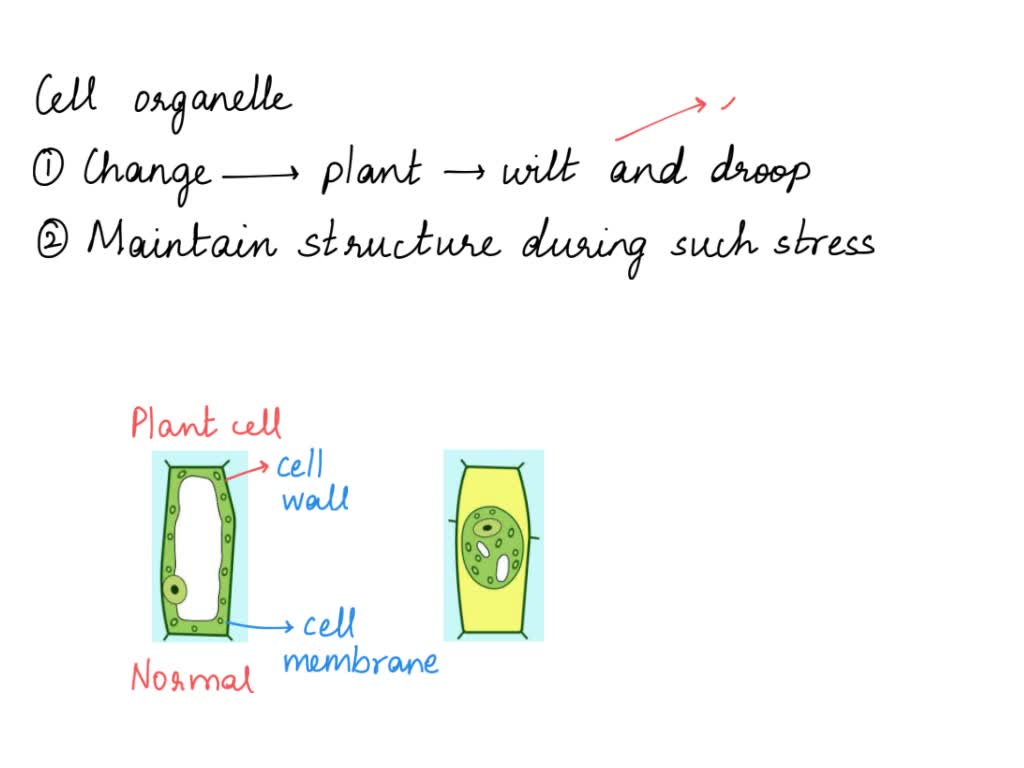 Cell organelle
① Change → plant → wilt and droop
② Maintain structure during such stress
Plant cell
cell
wall
cell
membrane
Normal